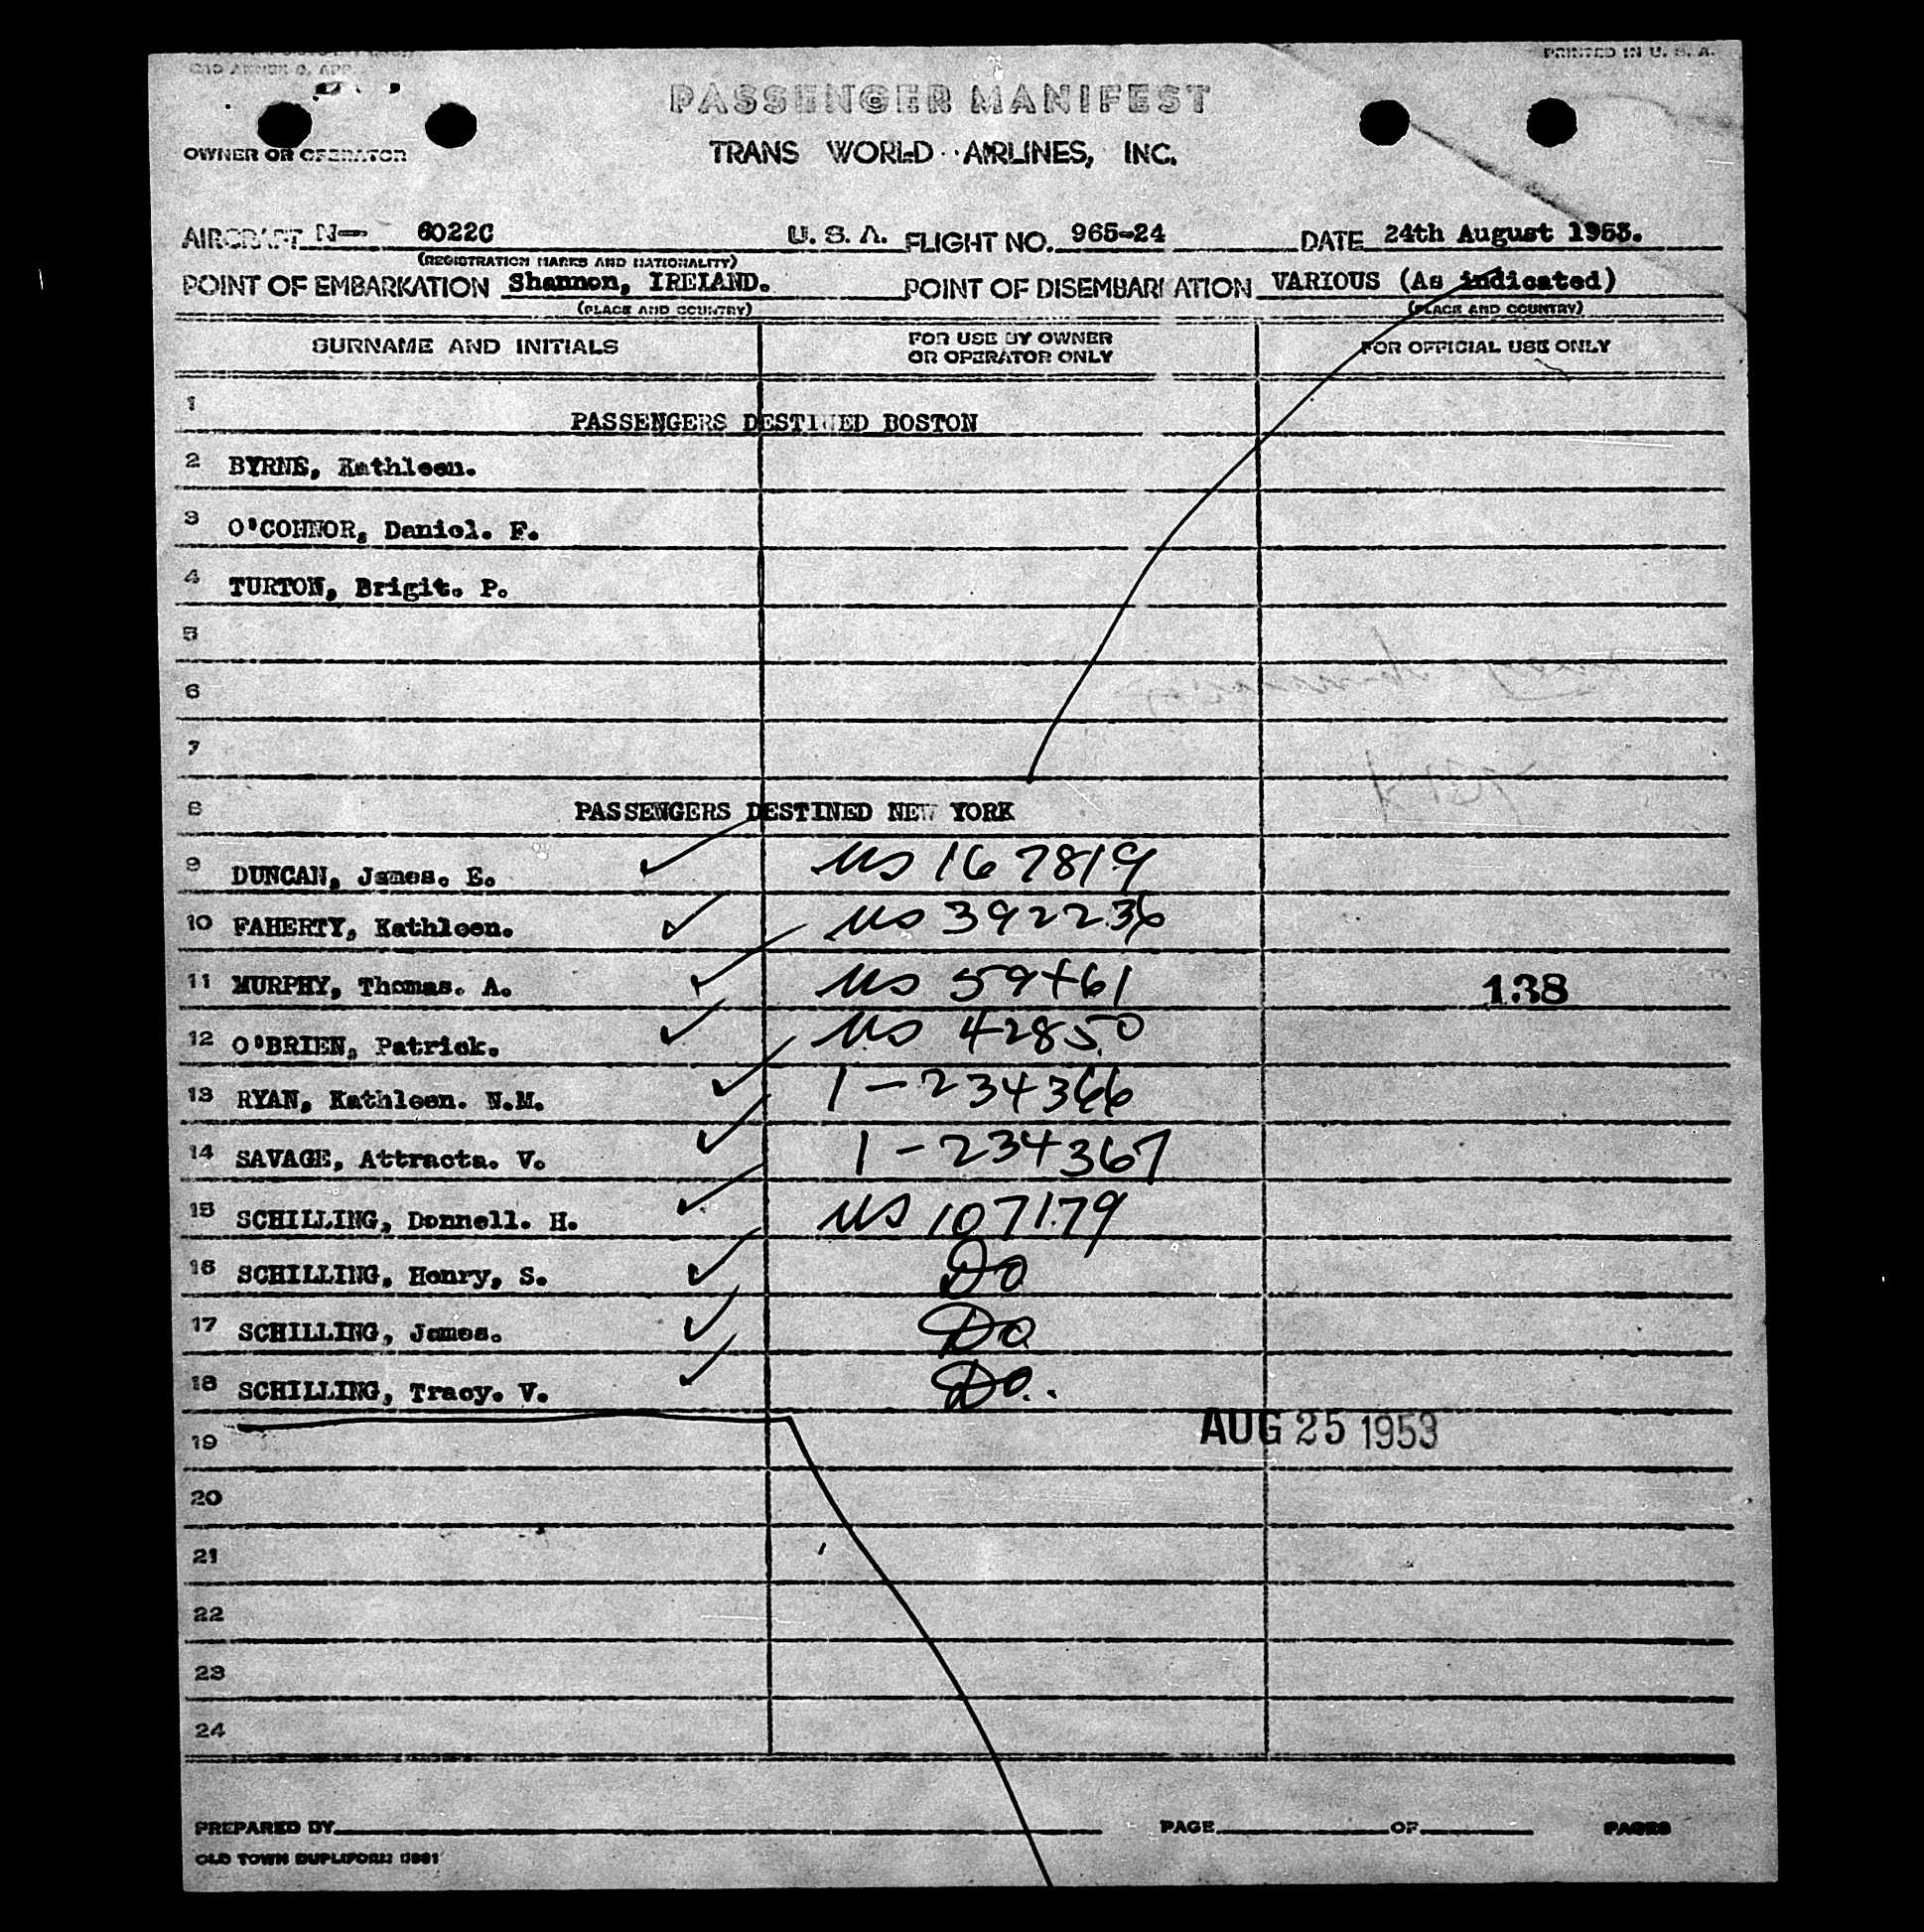 PRINTED IN U. S. A.
PASSENGER MANIFEST
OWNER OR OPERATOR
TRANS WORLD AIRLINES, INC.
AIRCRAFT N- 6022C U. S. A. FLIGHT NO. 965-24 DATE 24th August 1953.
(REGISTRATION MARKS AND NATIONALITY)
POINT OF EMBARKATION Shannon, IRELAND. POINT OF DISEMBARKATION VARIOUS (As indicated)
(PLACE AND COUNTRY) (PLACE AND COUNTRY)
SURNAME AND INITIALS FOR USE BY OWNER OR OPERATOR ONLY FOR OFFICIAL USE ONLY
1 PASSENGERS DESTINED BOSTON
2 BYRNE, Kathleen.
3 O'CONNOR, Daniel. F.
4 TURTON, Brigit. P.
5
6
7
8 PASSENGERS DESTINED NEW YORK
9 DUNCAN, James. E. ✓ US 167819
10 FAHERTY, Kathleen. ✓ US 392236
11 MURPHY, Thomas. A. ✓ US 59461 138
12 O'BRIEN, Patrick. ✓ US 42850
13 RYAN, Kathleen. N.M. ✓ 1-234366
14 SAVAGE, Attracta. V. ✓ 1-234367
15 SCHILLING, Donnell. H. ✓ US 107179
16 SCHILLING, Henry, S. ✓ Do
17 SCHILLING, James. ✓ Do
18 SCHILLING, Tracy. V. ✓ Do.
AUG 25 1953
19
20
21
22
23
24
PREPARED BY PAGE OF PAGES
OLD TOWN DUPLIFORM